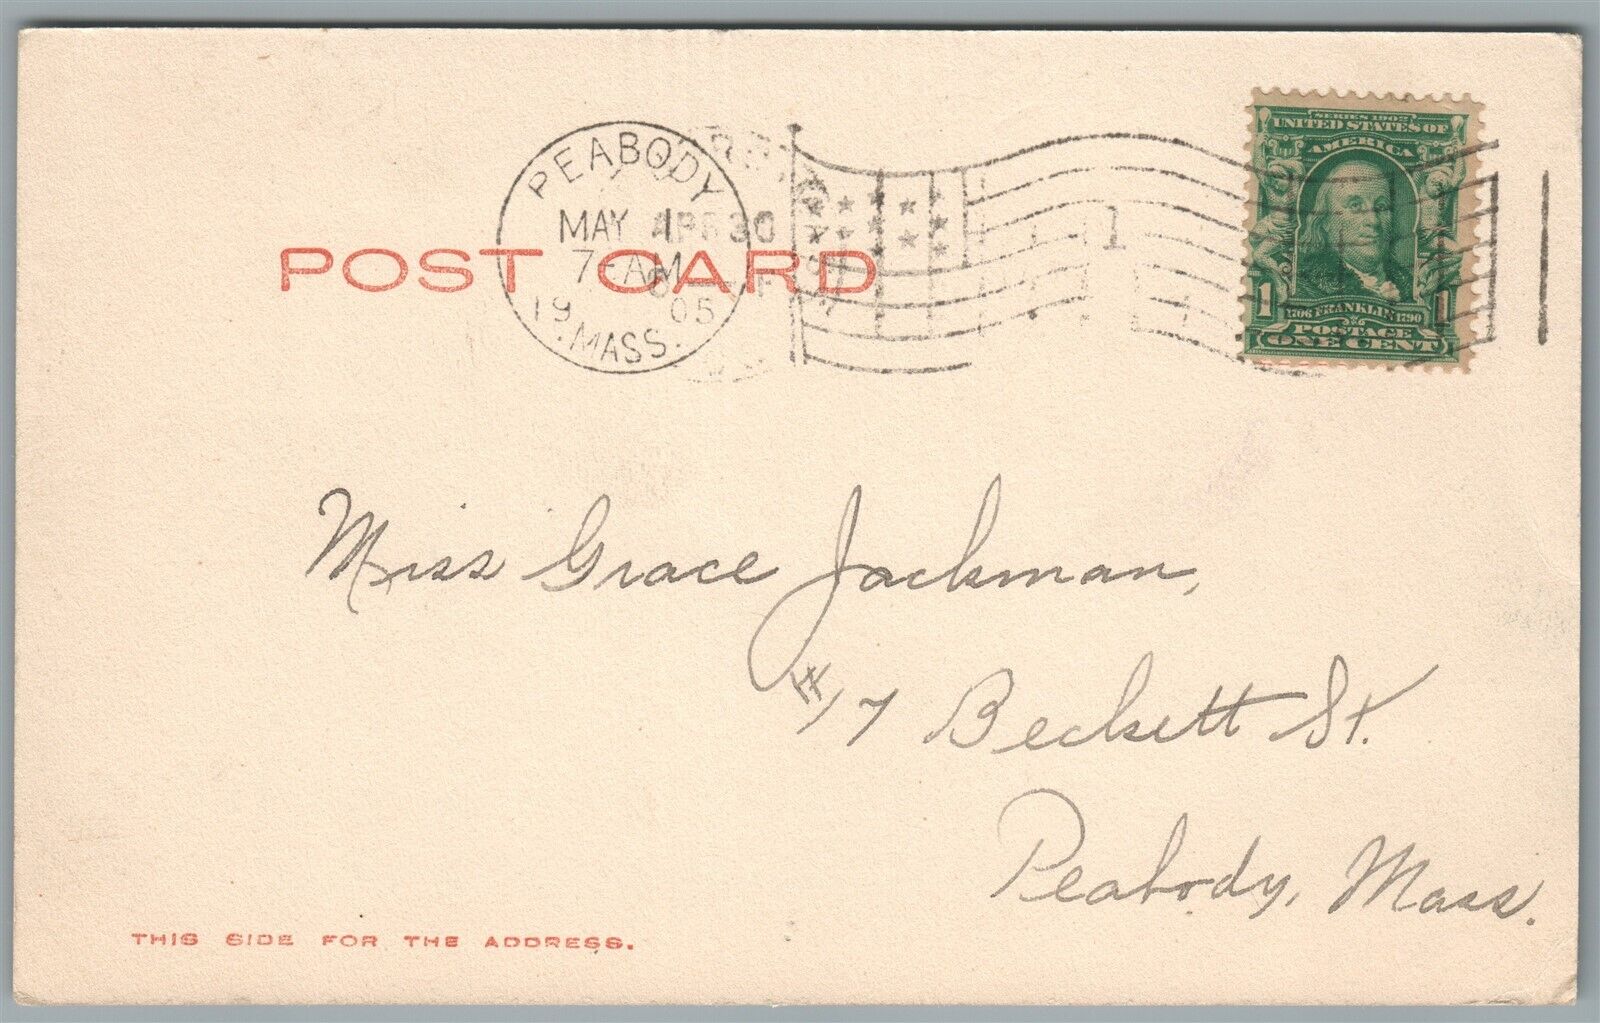 SERIES 1902
UNITED STATES OF
AMERICA
1 1706 FRANKLIN 1790 1
POSTAGE
ONE CENT
PEABODY
MAY 1
7-AM
19 05
.MASS.
APR 30
6
1
POST CARD
Miss Grace Jackman,
#17 Beckett St.
Peabody, Mass.
THIS SIDE FOR THE ADDRESS.